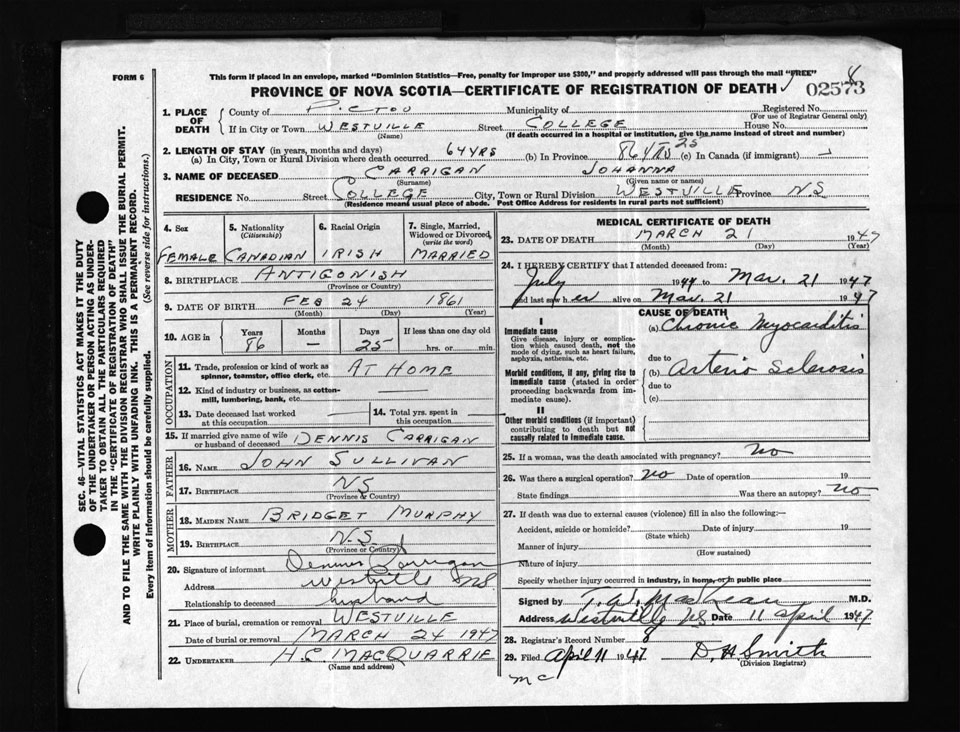 FORM 6
This form if placed in an envelope, marked "Dominion Statistics—Free, penalty for improper use $300," and properly addressed will pass through the mail "FREE"
8
PROVINCE OF NOVA SCOTIA—CERTIFICATE OF REGISTRATION OF DEATH
02573
1. PLACE OF DEATH
County of PICTOU Municipality of Registered No.
(For use of Registrar General only)
If in City or Town WESTVILLE Street COLLEGE House No.
(Name) (If death occurred in a hospital or institution, give the name instead of street and number)
2. LENGTH OF STAY (in years, months and days)
(a) In City, Town or Rural Division where death occurred 64 YRS (b) In Province 86 YRS 25 (c) In Canada (if immigrant)
3. NAME OF DECEASED CARRIGAN JOHANNA
(Surname) (Given name or names)
RESIDENCE No. Street COLLEGE City, Town or Rural Division WESTVILLE Province N.S.
(Residence means usual place of abode. Post Office Address for residents in rural parts not sufficient)
4. Sex 5. Nationality (Citizenship) 6. Racial Origin 7. Single, Married, Widowed or Divorced (write the word)
FEMALE CANADIAN IRISH MARRIED
8. BIRTHPLACE ANTIGONISH
(Province or Country)
9. DATE OF BIRTH FEB 24 1861
(Month) (Day) (Year)
10. AGE in Years Months Days If less than one day
86 — 25 hrs. or min.
OCCUPATION
11. Trade, profession or kind of work as spinner, teamster, office clerk, etc. AT HOME
12. Kind of industry or business, as cotton-mill, lumbering, bank, etc.
13. Date deceased last worked at this occupation 14. Total yrs. spent in this occupation
15. If married give name of wife or husband of deceased DENNIS CARRIGAN
FATHER
16. NAME JOHN SULLIVAN
17. BIRTHPLACE NS
(Province or Country)
MOTHER
18. MAIDEN NAME BRIDGET MURPHY
19. BIRTHPLACE N.S.
(Province or Country)
20. Signature of informant Dennis Carrigan
Address Westville NS.
Relationship to deceased husband
21. Place of burial, cremation or removal WESTVILLE
Date of burial or removal MARCH 24 1947
22. UNDERTAKER H.C MACQUARRIE
(Name and address)
MEDICAL CERTIFICATE OF DEATH
23. DATE OF DEATH MARCH 21 1947
(Month) (Day) (Year)
24. I HEREBY CERTIFY that I attended deceased from:
July 1944 to Mar. 21 1947
and last saw her alive on Mar. 21 1947
CAUSE OF DEATH
I
Immediate cause
Give disease, injury or complication which caused death, not the mode of dying, such as heart failure, asphyxia, asthenia, etc.
(a) Chronic Myocarditis
due to
Morbid conditions, if any, giving rise to immediate cause (stated in order proceeding backwards from immediate cause).
(b) Arterio Sclerosis
due to
(c)
II
Other morbid conditions (if important) contributing to death but not causally related to Immediate cause.
25. If a woman, was the death associated with pregnancy? no
26. Was there a surgical operation? no Date of operation 19
State findings Was there an autopsy? no
27. If death was due to external causes (violence) fill in also the following:—
Accident, suicide or homicide? Date of injury 19
(State which)
Manner of injury
(How sustained)
Nature of injury
Specify whether injury occurred in industry, in home, or in public place
Signed by M.D.
Address Westville NS Date 11 april 1947
28. Registrar's Record Number 8
29. Filed April 11 1947 D. H. Smith
(Division Registrar)
mc
SEC. 46—VITAL STATISTICS ACT MAKES IT THE DUTY
OF THE UNDERTAKER OR PERSON ACTING AS UNDER-
TAKER TO OBTAIN ALL THE PARTICULARS REQUIRED
IN THE "CERTIFICATE OF REGISTRATION OF DEATH"
AND TO FILE THE SAME WITH THE DIVISION REGISTRAR WHO SHALL ISSUE THE BURIAL PERMIT.
WRITE PLAINLY WITH UNFADING INK. THIS IS A PERMANENT RECORD.
Every item of information should be carefully supplied. (See reverse side for instructions.)